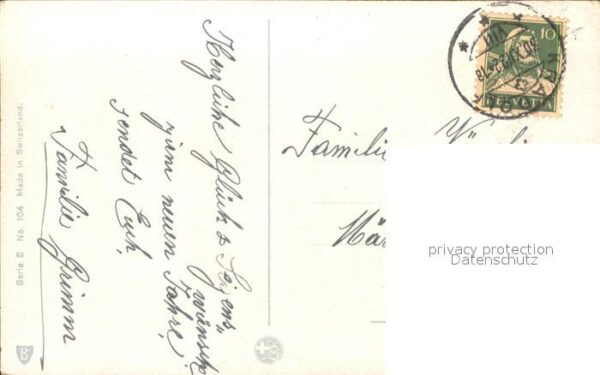 Herzliche Glück & Segens„
wünsche
zum neuen Jahre!
sendet Euch
Familie Grimm
Serie 2 No. 104 Made in Switzerland.
B
Familie
10
HELVETIA
VIII
privacy protection
Datenschutz